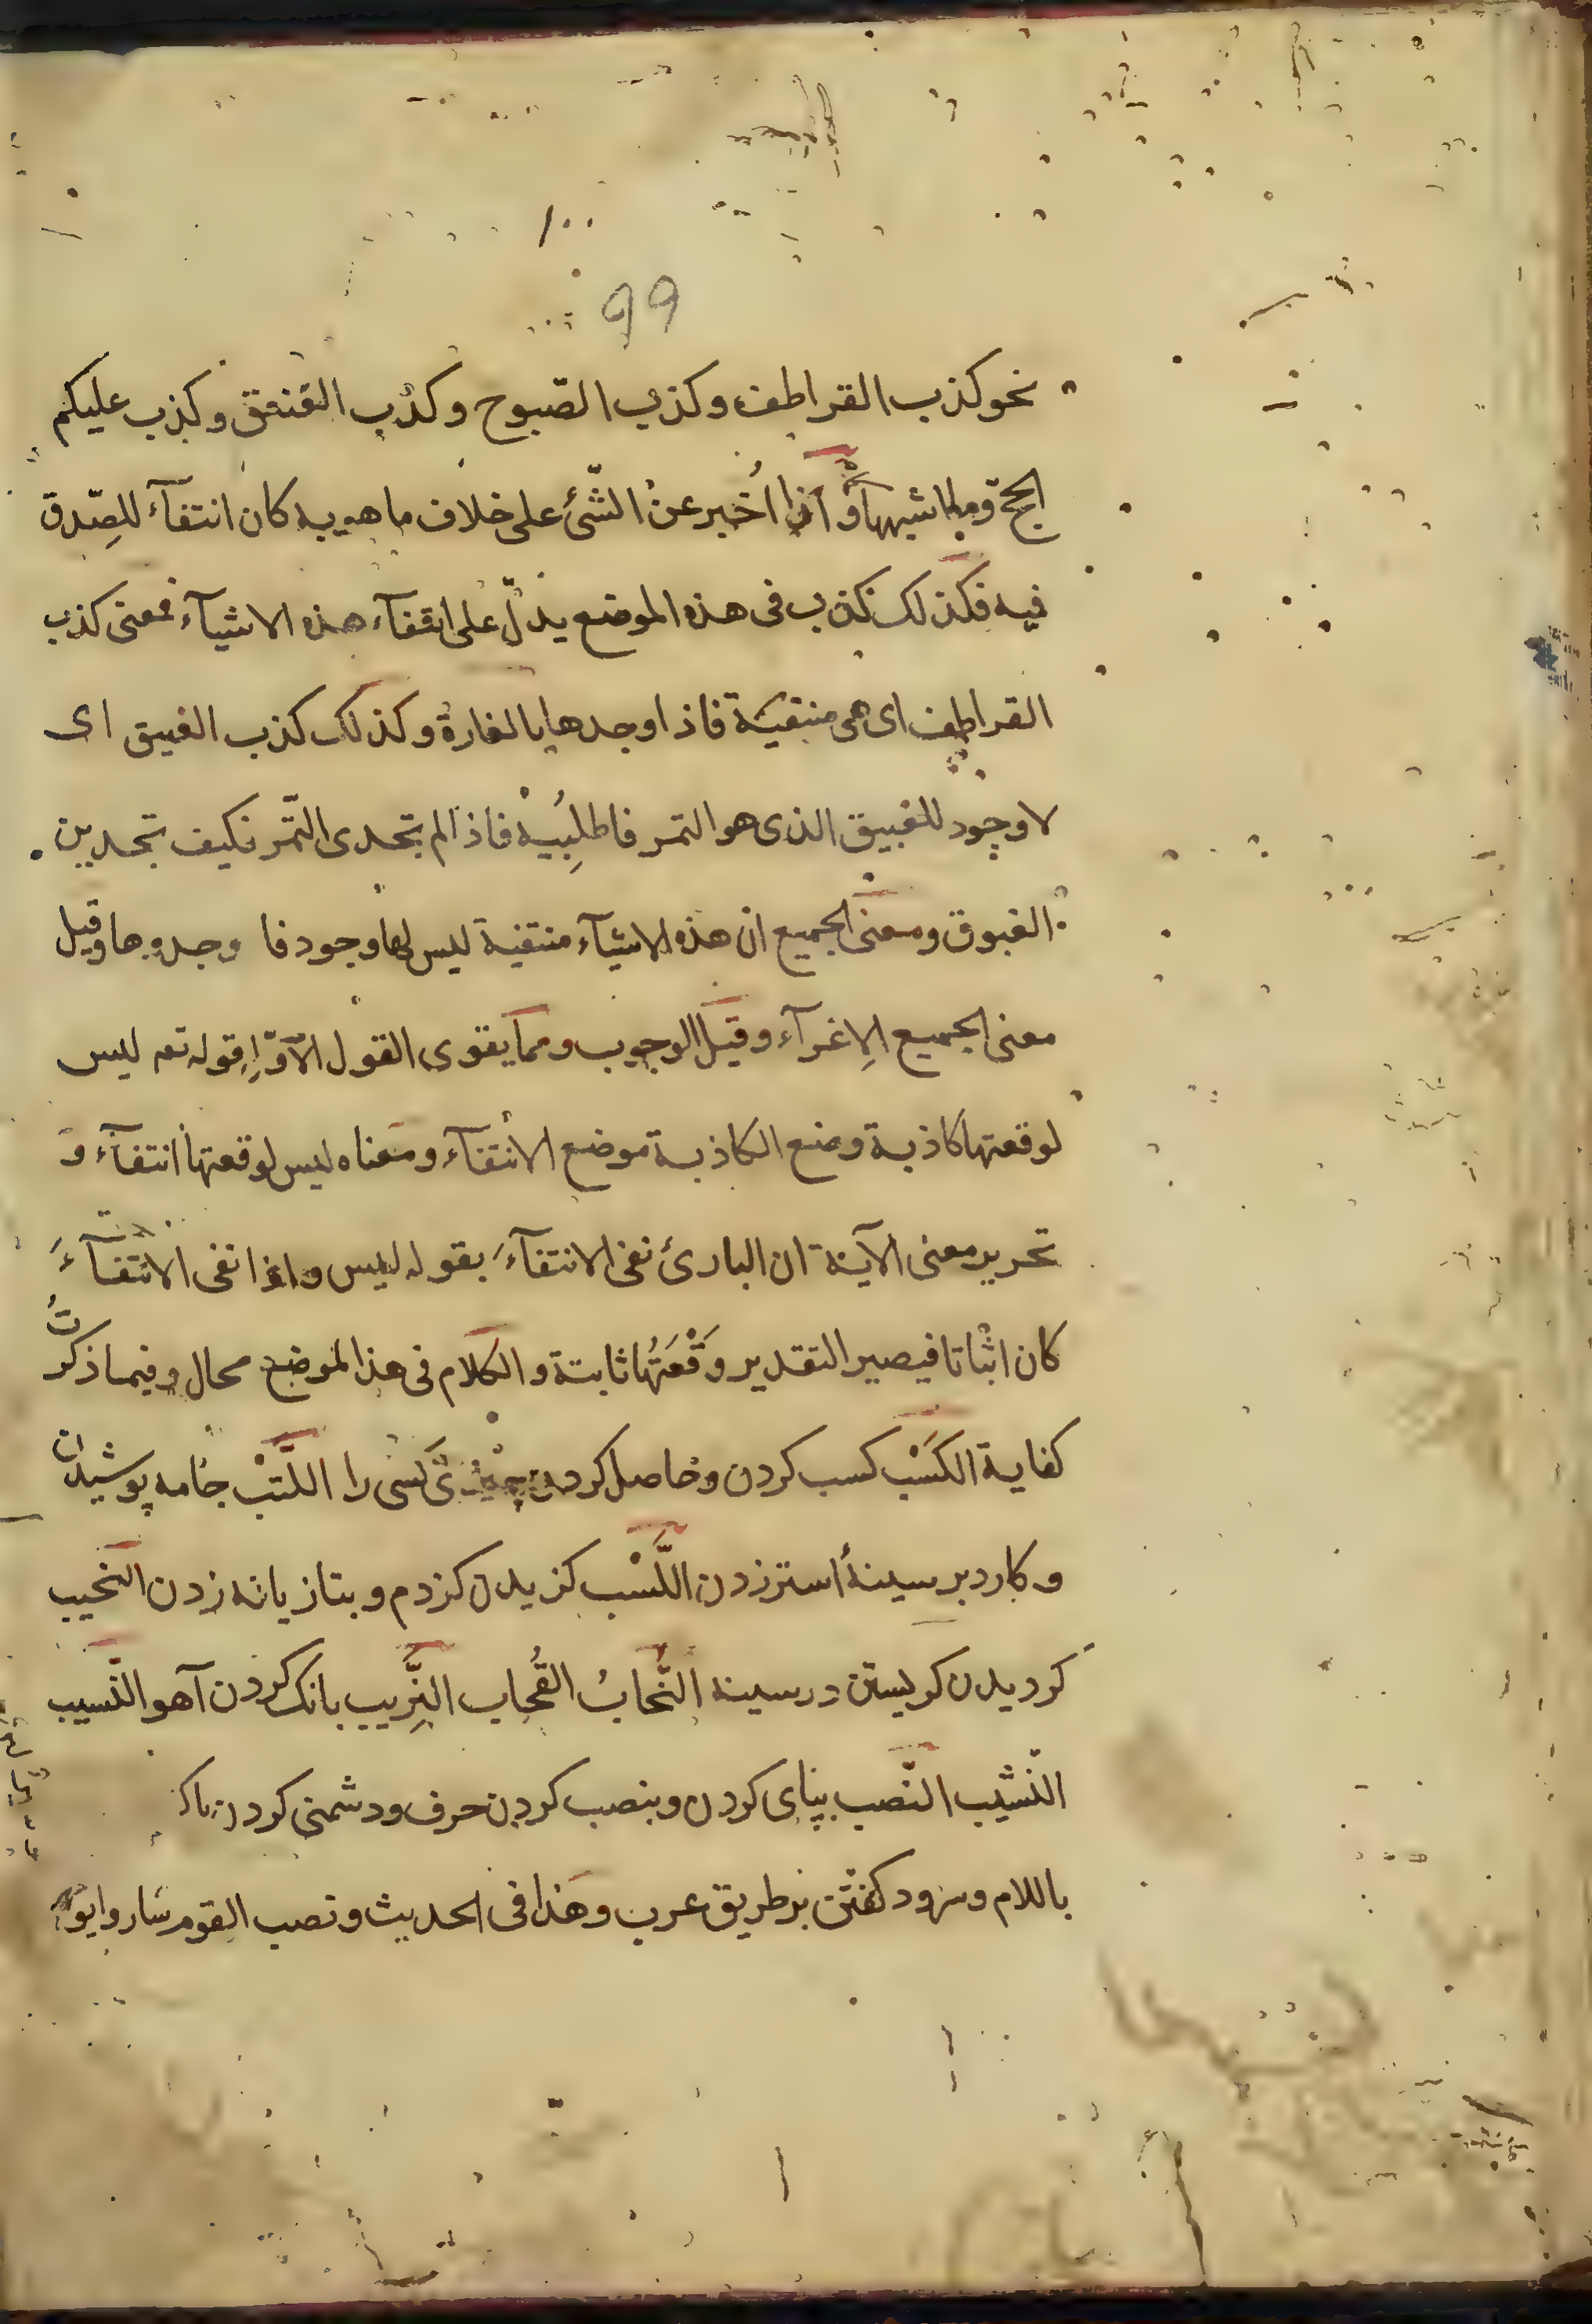 ١٠٠
99
نحو كذب القراطف وكذب الصّبوح وكذب القنفق وكذب عليكم
الحجة وما اشبهها واذا اُخبر عن الشّئ على خلاف ما هو به كان انتفآء للصِّدق
فيه فكذلك كذب فى هذه الموضع يدلّ على انتفآء هذه الاشيآء فمعنى كذب
القراطف اى هى منتفية فاذا وجدها بالغارة وكذلك كذب الغبيق اى
لا وجود للغبيق الذى هو التمر فاطلِبيه فاذا لم تجدى التّمر فكيف تجدين
الغبوق ومعنى الجميع ان هذه الاشيآء منتفية ليس لها وجود فا وجدوها وقيل
معنى الجميع الاِغرآء وقيل الوجوب ومما يقوى القول الاوّل قوله تعـ ليس
لوقعتها كاذبة وضع الكاذبة موضع الانتفآء ومعناه ليس لوقعتها انتفآء و
تحرير معنى الآية ان البارئ نفى الانتفآءَ بقوله ليس واذا نفى الانتفآءَ
كان اثباتا فيصير التقدير وَقْعَتُها ثابتة والكلام فى هذا الموضع محال وفيما ذكرتُ
كفاية الكَسْب كسب كردن وحاصل كردن چيزىَ كسى را اللَّتْب جامه پوشيدن
وكارد بر سينهٔ استر زدن اللَّسْب كزيدن كژدم وبتازيانه زدن النحيب
كرديدن كريستن در سينه النُّحابُ القُحاب النَّزِيب بانك كردن آهو النّسيب
النّشيب النّصب بپاى كردن وبنصب كردن حرف ودشمنى كردن باك
باللام وسرود كفتن بر طريق عرب وهذا فى الحديث ونصب القوم ساروا يو